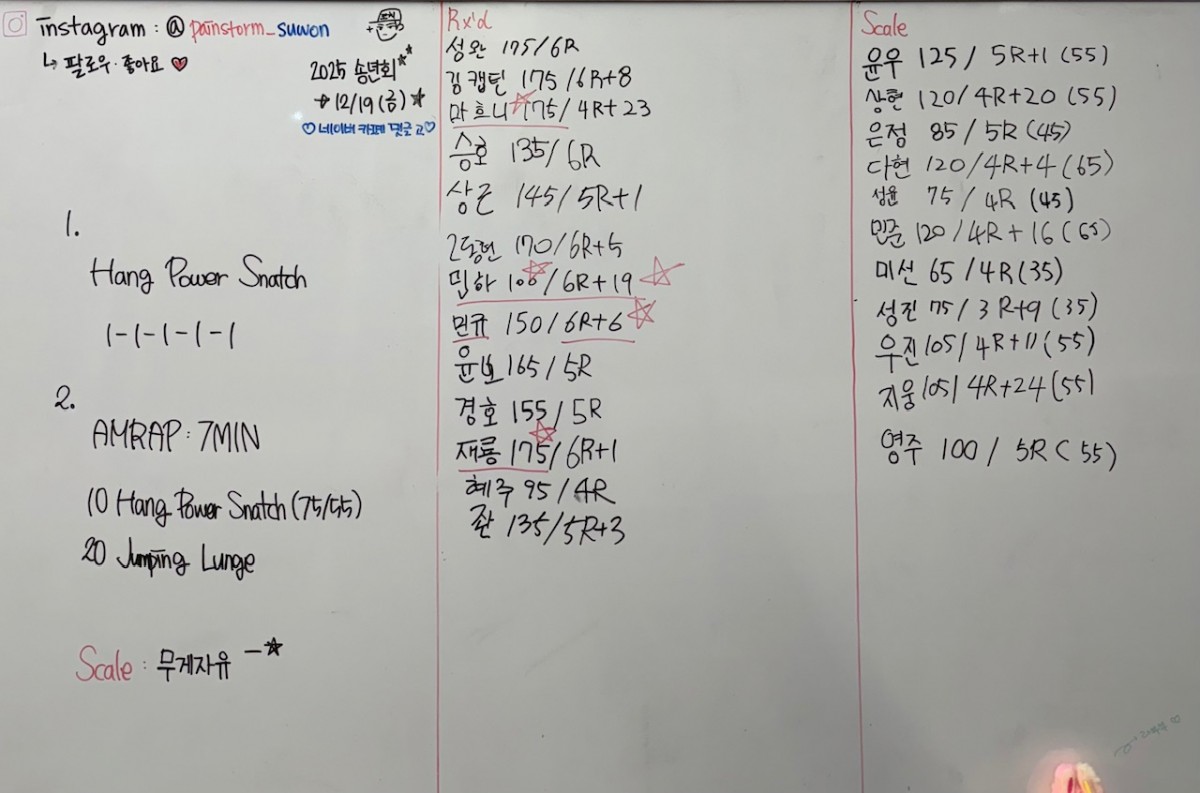 instagram : @ painstorm_suwon
↳ 팔로우·좋아요 ♥
2025 송년회**
→ 12/19(금)★
♡네이버 카페 댓글 고♡
1.
Hang Power Snatch
1-1-1-1-1
2.
AMRAP : 7MIN
10 Hang Power Snatch (75/55)
20 Jumping Lunge
Scale : 무게자유 -☆
Rx'd
성완 175/6R
김캡틴 175/6R+8
마호니 175/4R+23
승호 135/6R
상근 145/5R+1
2동현 170/6R+5
민하 100/6R+19 ☆
민규 150/6R+6 ☆
윤보 165/5R
경호 155/5R
재룡 175/6R+1
혜주 95/4R
좐 135/5R+3
Scale
윤우 125/ 5R+1 (55)
상현 120/4R+20 (55)
은정 85/5R (45)
다현 120/4R+4 (65)
성윤 75/4R (45)
민준 120/4R+16 (65)
미선 65/4R (35)
성진 75/3R+9 (35)
우진 105/4R+11 (55)
지웅 105/4R+24 (55)
영주 100/ 5R (55)